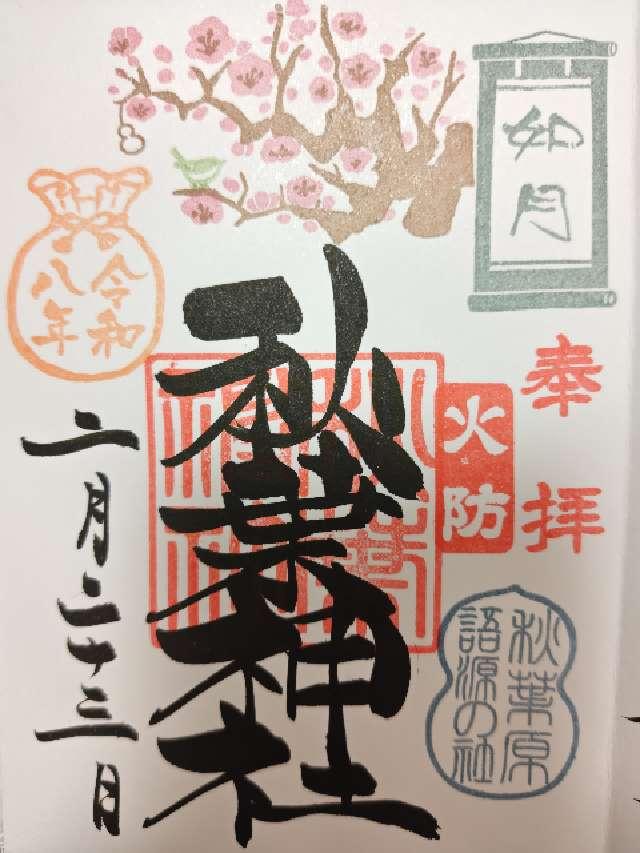 如月
奉拝
火防
秋葉原
語源の社
秋葉神社
令和
八年
二月二十三日